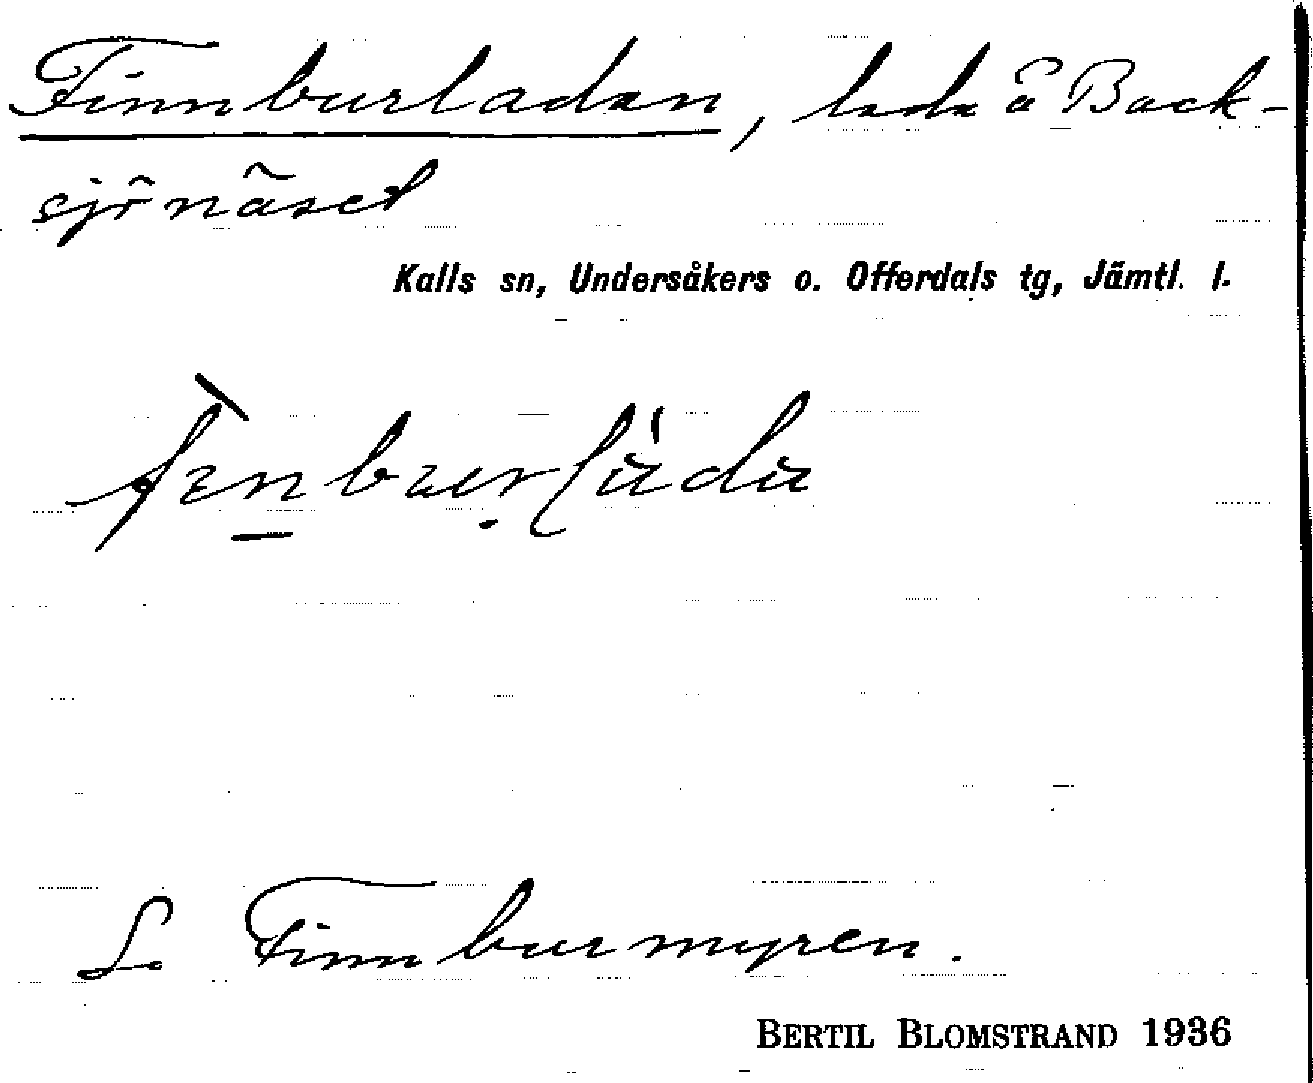 Finnburladan, lada å Back-
sjönäset
Kalls sn, Undersåkers o. Offerdals tg, Jämtl. l.
S. Finnburmyren.
BERTIL BLOMSTRAND 1936